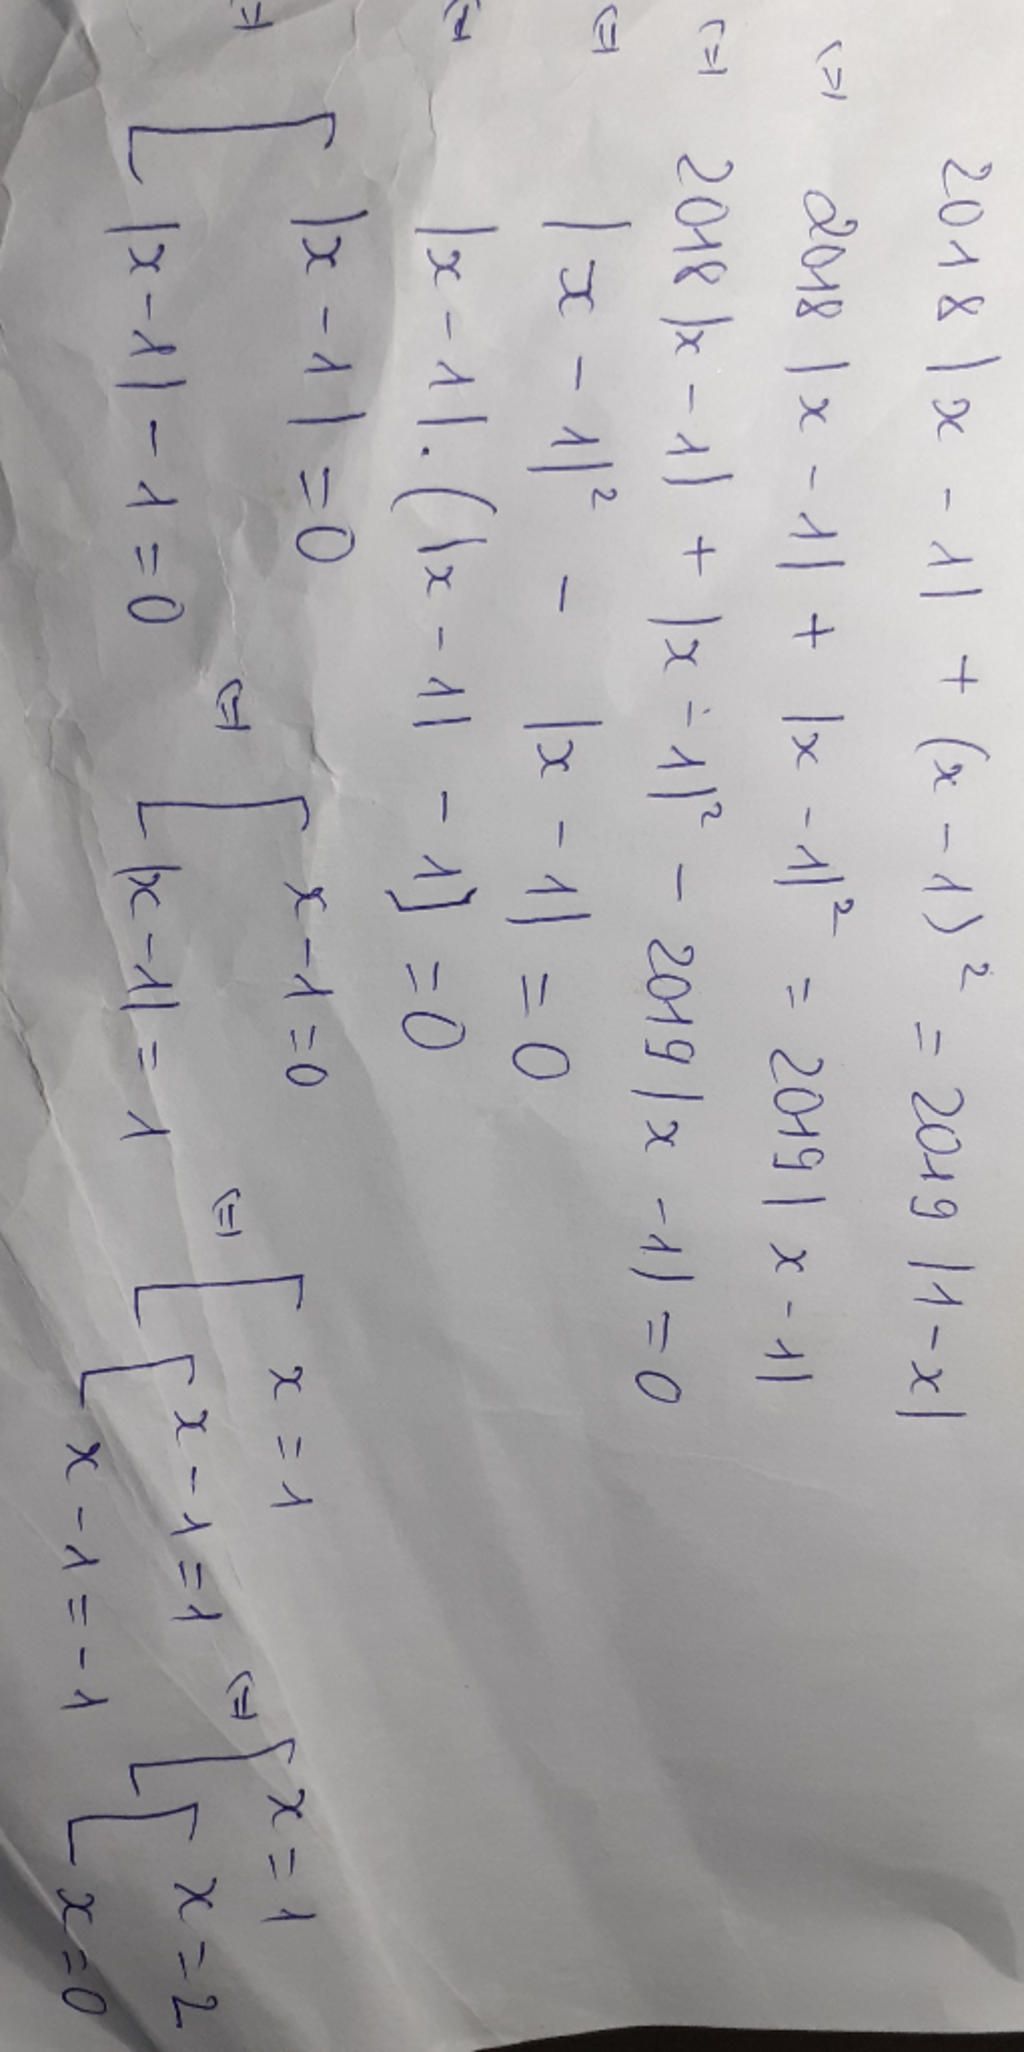 2018|x - 1| + (x - 1)² = 2019|1 - x|
(=) 2018|x - 1| + |x - 1|² = 2019|x - 1|
(=) 2018|x - 1| + |x - 1|² - 2019|x - 1| = 0
(=) |x - 1|² - |x - 1| = 0
(=) |x - 1|.(|x - 1| - 1) = 0
(=) [ |x - 1| = 0 (=) [ x - 1 = 0 (=) [ x = 1 (=) [ x = 1
|x - 1| - 1 = 0 |x - 1| = 1 [ x - 1 = 1 [ x = 2
x - 1 = -1 x = 0